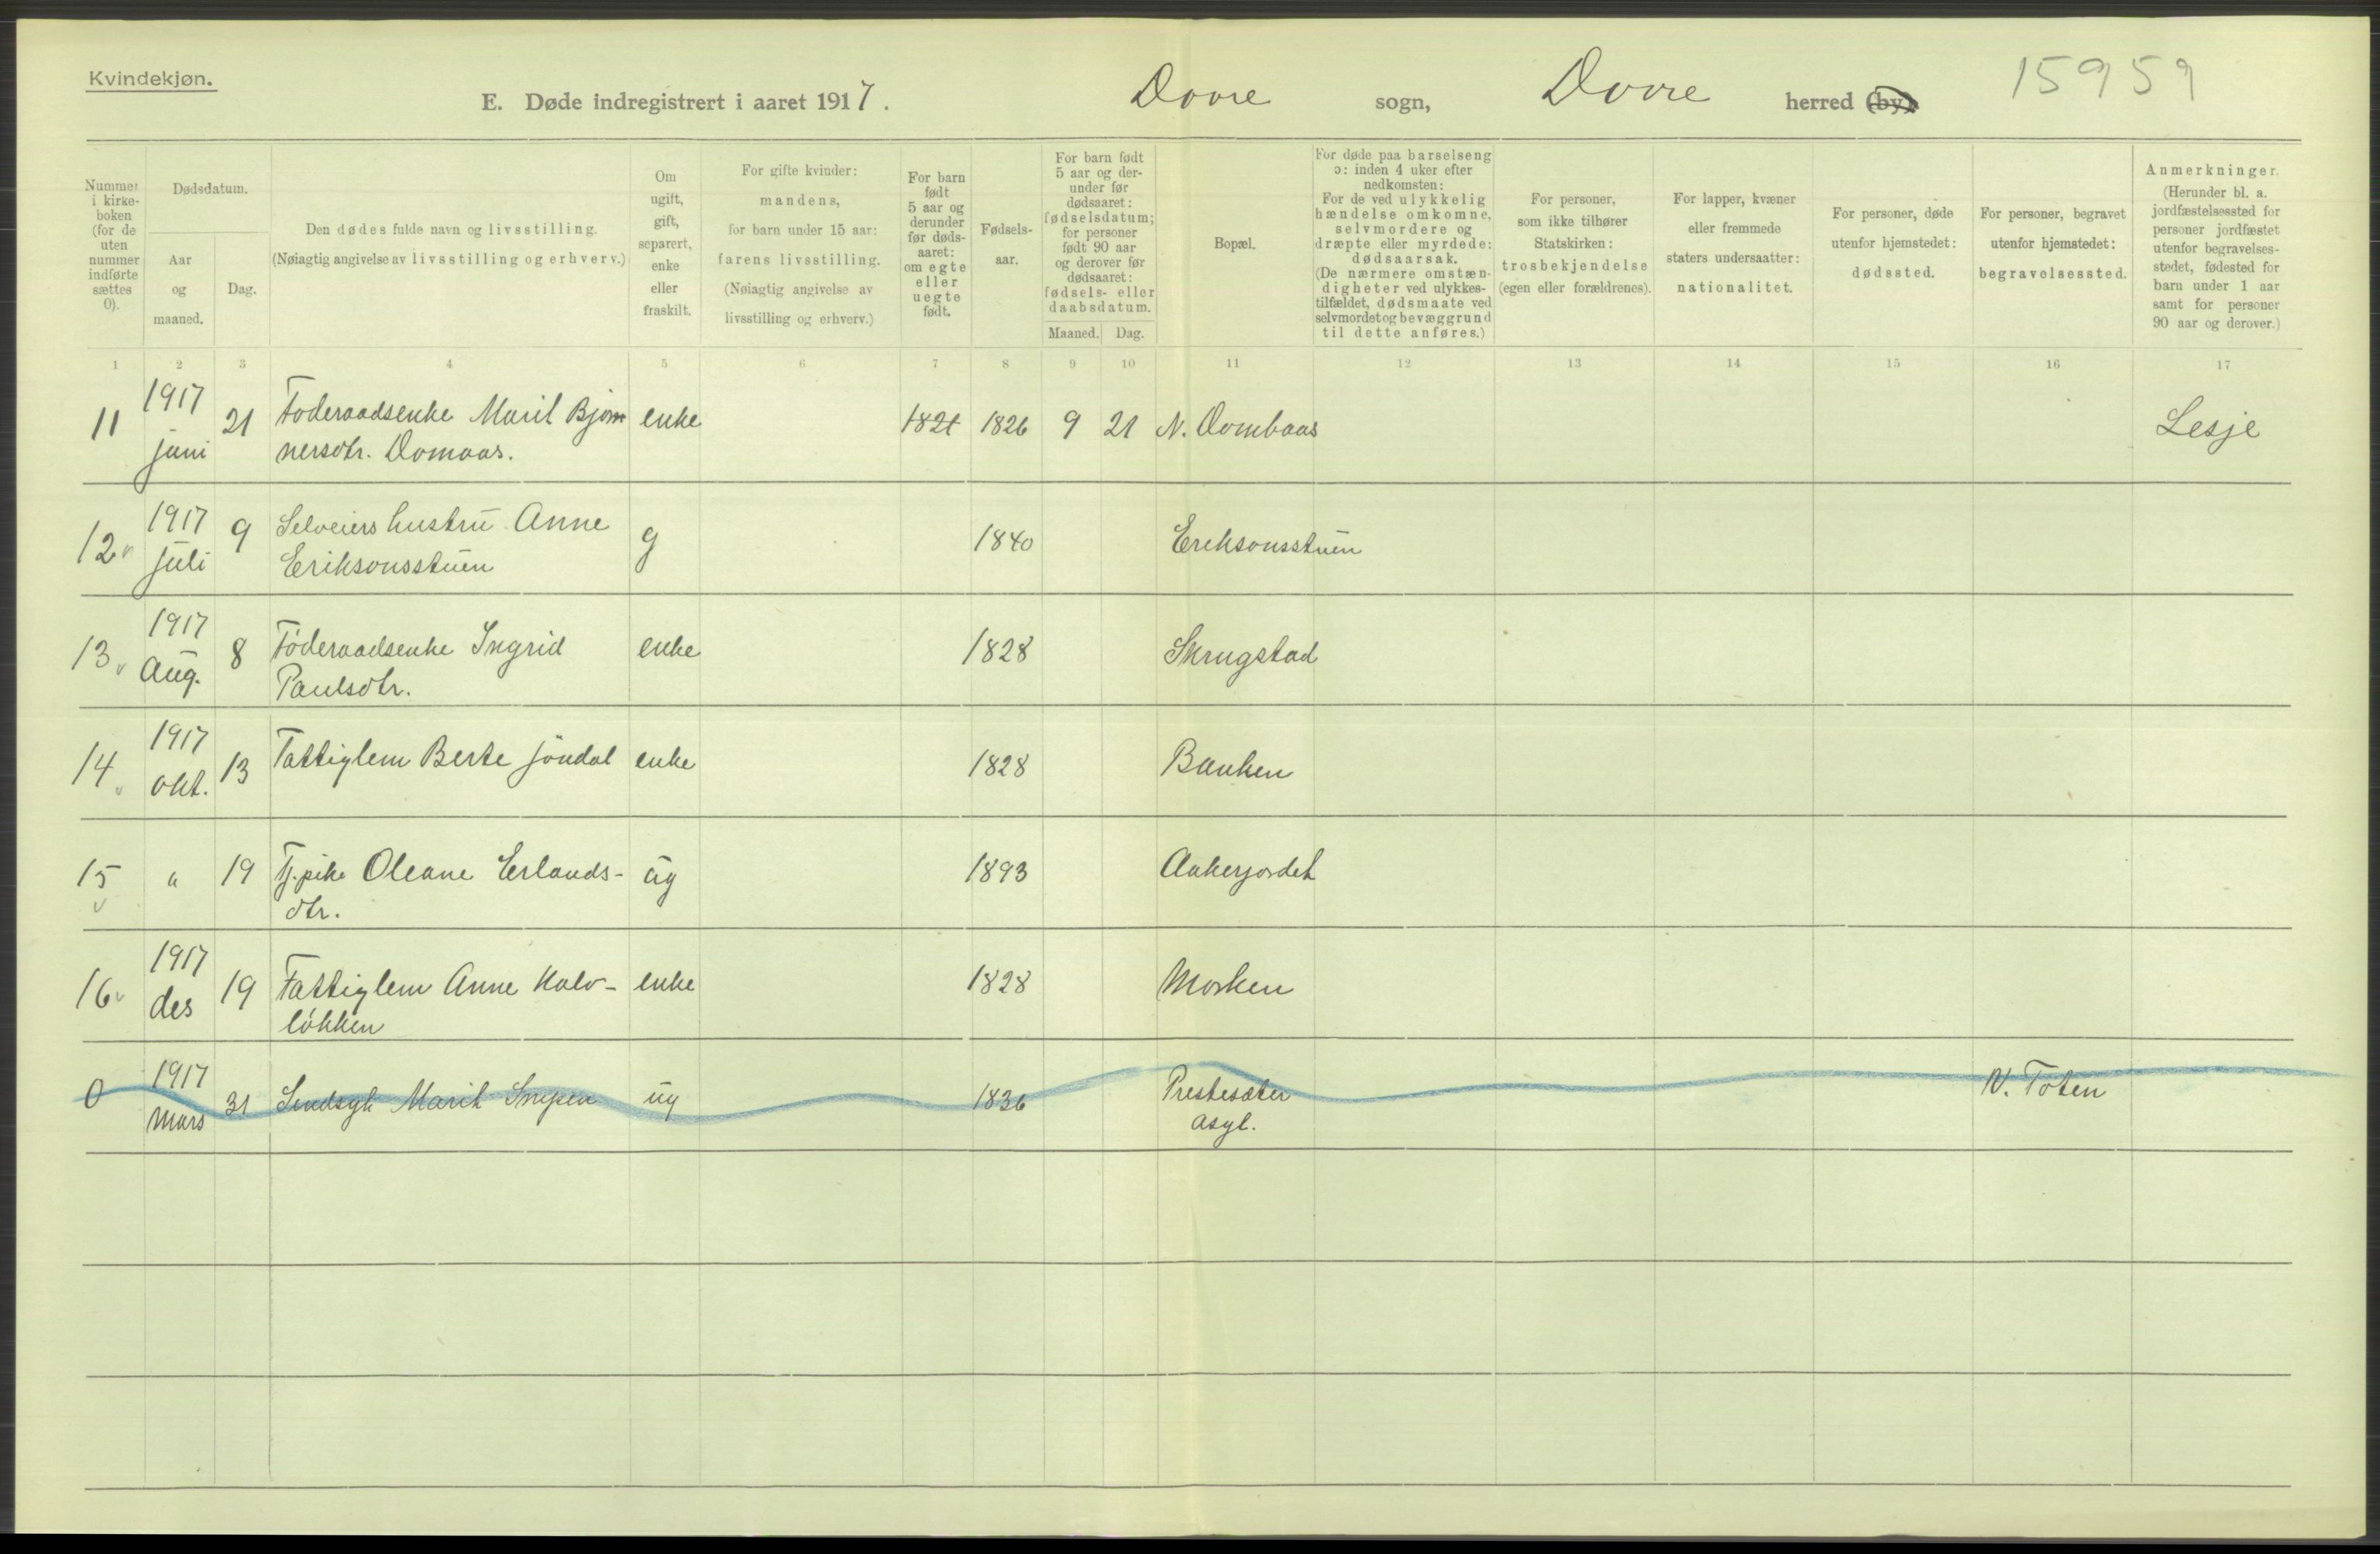 Kvindekjøn.
E. Døde indregistrert i aaret 1917. Dovre sogn, Dovre herred (by). 15959
Nummer i kirkeboken (for de uten nummer indførte sættes 0).
Dødsdatum.
Aar og maaned.
Dag.
Den dødes fulde navn og livsstilling.
(Nøiagtig angivelse av livsstilling og erhverv.)
Om ugift, gift, separert, enke eller fraskilt.
For gifte kvinder: mandens, for barn under 15 aar: farens livsstilling. (Nøiagtig angivelse av livsstilling og erhverv.)
For barn født 5 aar og derunder før dødsaaret: om egte eller uegte født.
Fødselsaar.
For barn født 5 aar og derunder før dødsaaret: fødselsdatum; for personer født 90 aar og derover før dødsaaret: fødsels- eller daabsdatum.
Maaned. Dag.
Bopæl.
For døde paa barselseng ɔ: inden 4 uker efter nedkomsten: For de ved ulykkelig hændelse omkomne, selvmordere og dræpte eller myrdede: dødsaarsak. (De nærmere omstændigheter ved ulykkestilfældet, dødsmaate ved selvmordet og bevæggrund til dette anføres.)
For personer, som ikke tilhører Statskirken: trosbekjendelse (egen eller forældrenes).
For lapper, kvæner eller fremmede staters undersaatter: nationalitet.
For personer, døde utenfor hjemstedet: dødssted.
For personer, begravet utenfor hjemstedet: begravelsessted.
Anmerkninger. (Herunder bl. a. jordfæstelsessted for personer jordfæstet utenfor begravelsesstedet, fødested for barn under 1 aar samt for personer 90 aar og derover.)
1 2 3 4 5 6 7 8 9 10 11 12 13 14 15 16 17
11 1917 juni 21 Føderaadsenke Marit Bjørnnersdtr. Domaas. enke 1826 9 21 N. Dombaas Lesje
12 1917 juli 9 Selveiers hustru Anne Eriksonsstuen g 1840 Eriksonsstuen
13 1917 Aug. 8 Føderaadsenke Ingrid Paulsdtr. enke 1828 Skrugstad
14 1917 okt. 13 Fattiglem Berte Jöndal enke 1828 Banken
15 " 19 Tj.pike Oleane Erlandsdtr. ug 1893
16 1917 des 19 Fattiglem Anne Kalvløkken enke 1828 Morken
0 1917 Mars 31 Sindsyk Marit ug 1836 Prestesæter asyl. N. Toten